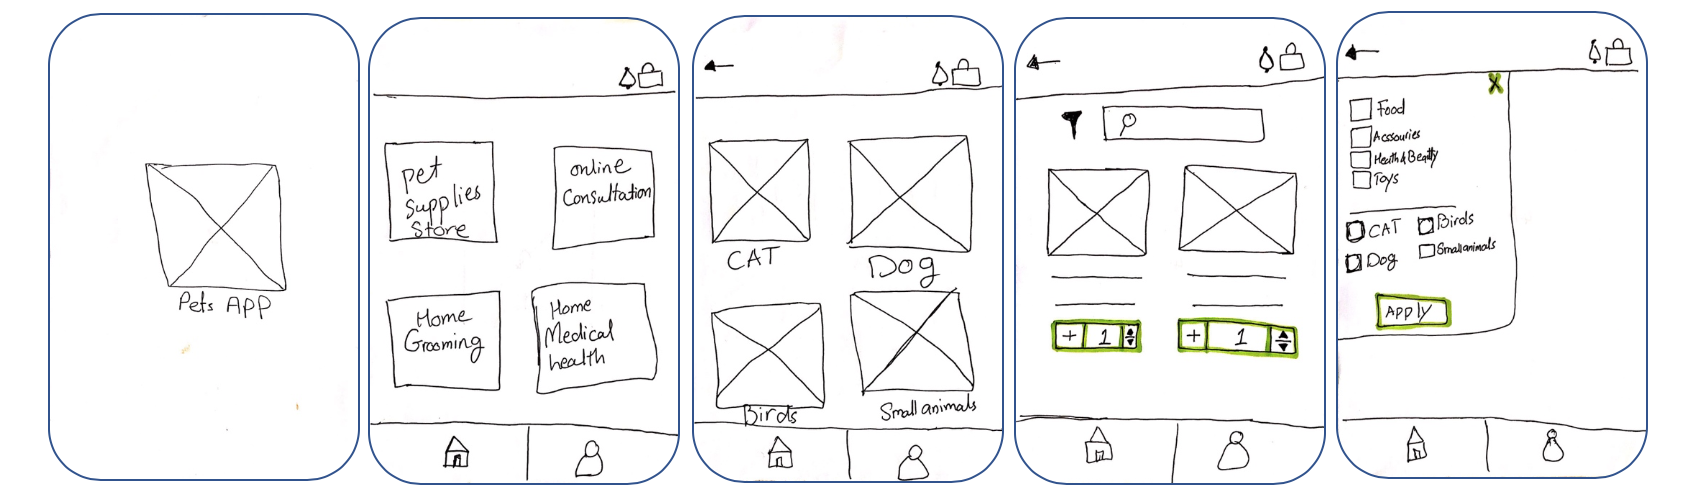 Pets APP
Pet
Supplies
Store
online
Consultation
Home
Grooming
Home
Medical
health
CAT
Dog
Birds
Small animals
+ 1
+ 1
X
Food
Accsouries
Health & Beatty
Toys
CAT
Birds
Dog
Small animals
APPly